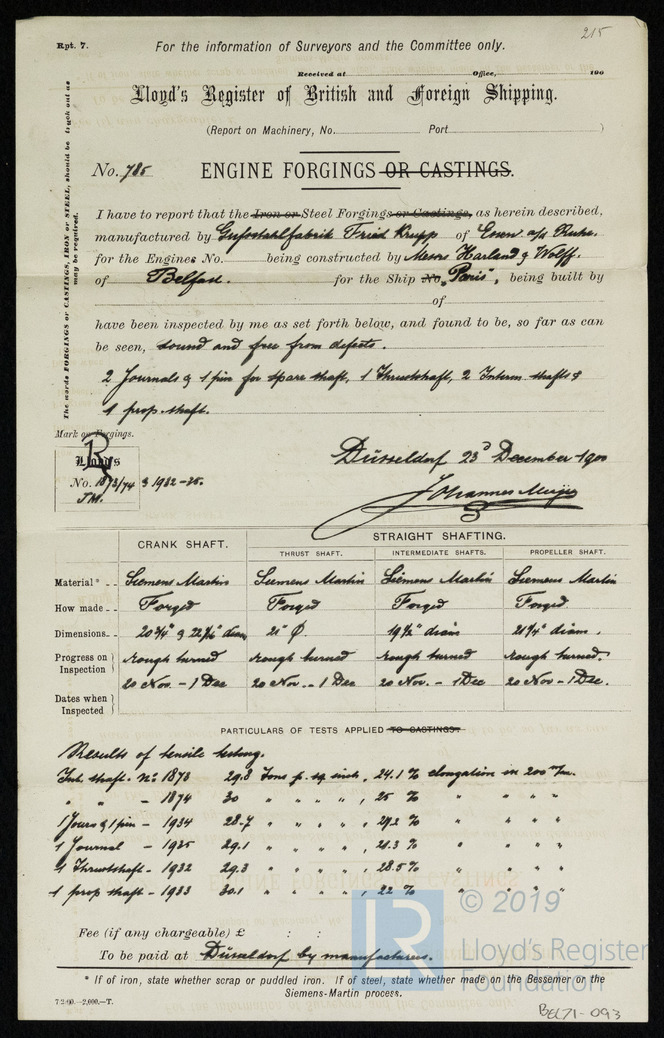 215
Rpt. 7.
For the information of Surveyors and the Committee only.
Received at Office, 190
Lloyd's Register of British and Foreign Shipping.
(Report on Machinery, No. Port )
No. 785 ENGINE FORGINGS OR CASTINGS.
The words FORGINGS or CASTINGS, IRON or STEEL, should be struck out as may be required.
I have to report that the Iron or Steel Forgings or Castings, as herein described,
manufactured by Gussstahlfabrik Fried Krupp of Essen a/d Ruhr.
for the Engines No. being constructed by Messrs Harland & Wolff.
of Belfast. for the Ship No "Paris", being built by
of
have been inspected by me as set forth below, and found to be, so far as can
be seen, sound and free from defects.
2 Journals & 1 pin for spare shaft, 1 Thrustshaft, 2 Interm shafts &
1 prop shaft.
Mark on Forgings.
Lloyd's
No. 1873/74 & 1932-35.
JM.
Düsseldorf 23d December 1900
Johannes Meijer
CRANK SHAFT. STRAIGHT SHAFTING.
THRUST SHAFT. INTERMEDIATE SHAFTS. PROPELLER SHAFT.
Material* Siemens Martin Siemens Martin Siemens Martin Siemens Martin
How made Forged Forged Forged Forged
Dimensions 20 3/4" & diam 21" Ø. 19 1/2" diam 21 1/4" diam.
Progress on Inspection rough turned rough turned rough turned rough turned.
Dates when Inspected 20 Nov. - 1 Dec 20 Nov - 1 Dec 20 Nov. - 1 Dec 20 Nov - 1 Dec.
PARTICULARS OF TESTS APPLIED TO CASTINGS.
Results of tensile testing.
Int. shaft. No 1873 29.8 Tons p. sq inch, 24.1 % elongation in 200 m/m.
" " - 1874 30 " " " " , 25 % " " " "
1 Journ & 1 pin - 1934 28.7 " " " " , % " " " "
1 Journal - 1935 29.1 " " " " , % " " " "
1 Thrustshaft - 1932 29.3 " " " " , 28.5 % " " " "
1 prop shaft - 1933 30.1 " " " " , 22 % " " " "
Fee (if any chargeable) £ : :
To be paid at Düsseldorf by manufacturers.
* If of iron, state whether scrap or puddled iron. If of steel, state whether made on the Bessemer or the
Siemens-Martin process.
7 2/00.—2,000.—T.
© 2019
LR
Lloyd's Register
Foundation
BEL71-093